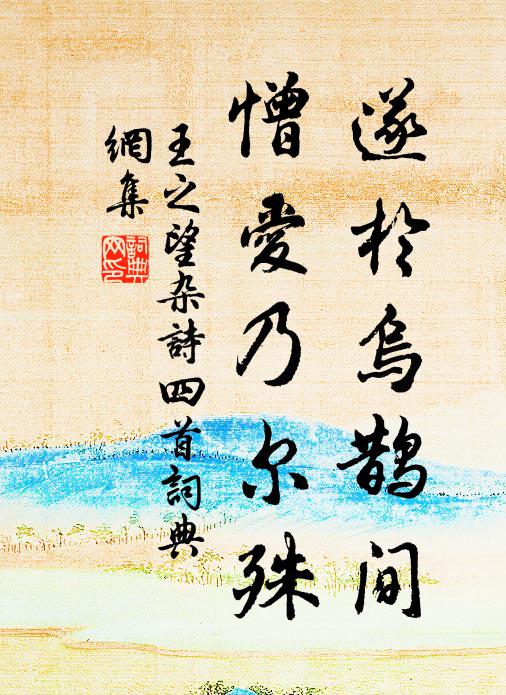 遂於烏鵲間
憎愛乃尔殊
王之望杂詩四首詞典
網集
詞典
网印